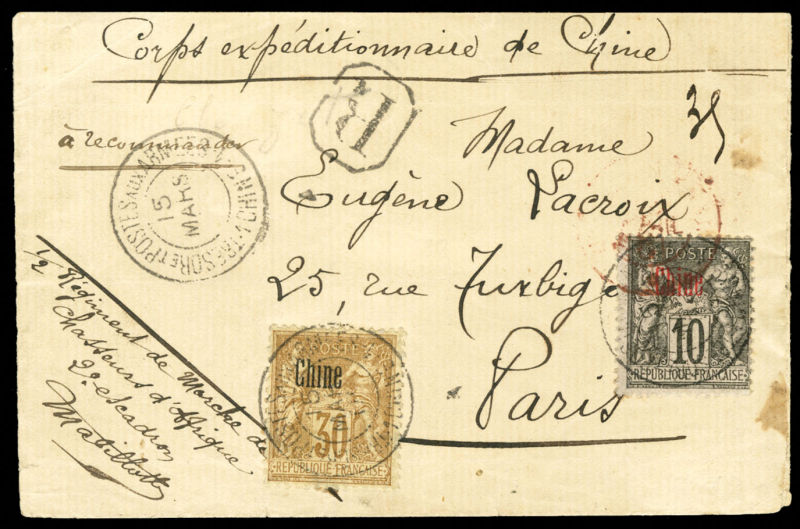 Corps expéditionnaire de Chine
R
35
à recommander
Madame
Eugène Lacroix
25, rue Turbigo
Paris
TRESOR ET POSTES AUX ARMEES CHINE
15
MARS
1/2 Régiment de Marche de
Chasseurs d'Afrique
2e escadron
POSTE
Chine
30
REPUBLIQUE FRANÇAISE
POSTE
Chine
10
REPUBLIQUE FRANÇAISE